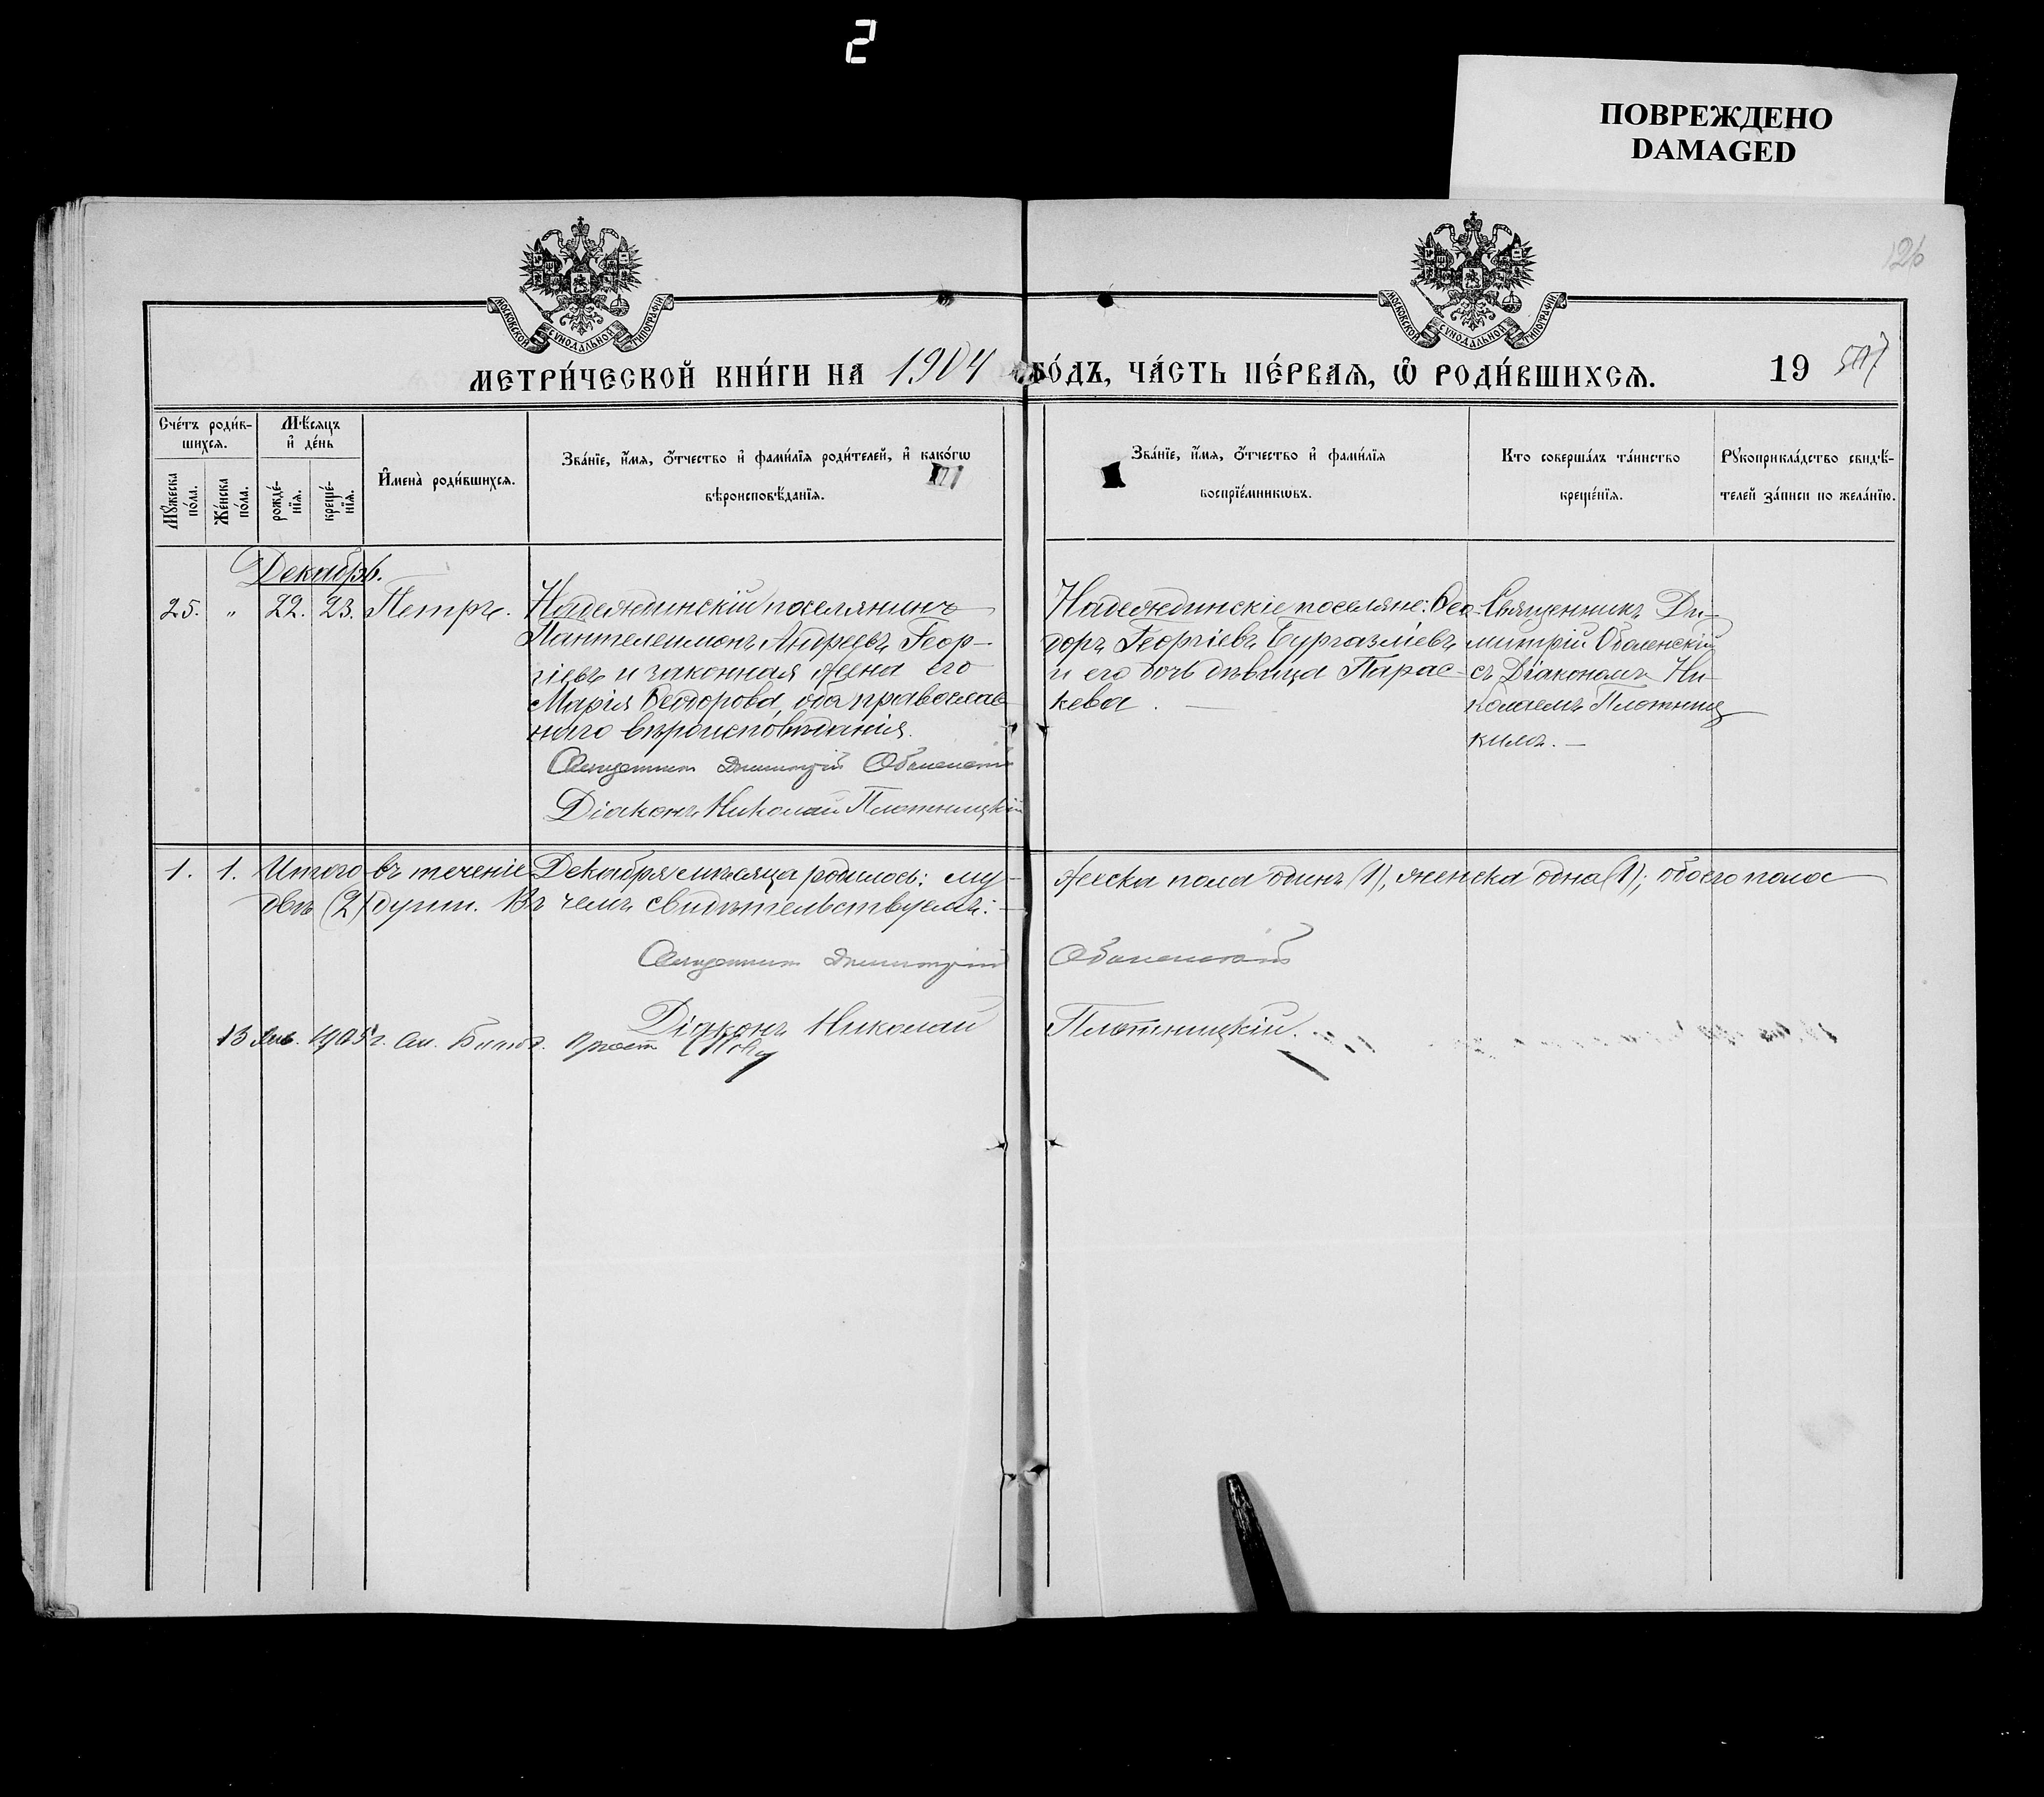 2
ПОВРЕЖДЕНО
DAMAGED
126
МОСКОВСКОЙ СѴНОДАЛЬНОЙ ТИПОГРАФІИ
МОСКОВСКОЙ СѴНОДАЛЬНОЙ ТИПОГРАФІИ
МЕТРИ́ЧЕСКОЙ КНИ́ГИ НА 1904 ГО́ДЪ, ЧА́СТЬ ПЕ́РВАѦ, Ѡ РОДИ́ВШИХСѦ. 19
Сче́тъ роди́в-
шихсѧ.
Мꙋ́жеска по́ла.
Же́нска по́ла.
Мѣ́сѧцъ и҆ де́нь
рожде́-
нїѧ.
креще́-
нїѧ.
И҆мена̀ роди́вшихсѧ.
Зва́нїе, и҆́мѧ, ѻ҆́тчество и҆ фами́лїѧ роди́телей, и҆ како́гѡ
вѣроисповѣ́данїѧ.
Зва́нїе, и҆́мѧ, ѻ҆́тчество и҆ фами́лїѧ
воспрїе́мникѡвъ.
Кто соверша́лъ та́инство
креще́нїѧ.
Рꙋкоприкла́дство свидѣ́-
телей за́писи по жела́нїю.
Декабрь.
25. „ 22. 23. Петръ.
Надеждинскій поселянинъ
Пантелеимонъ Андреевъ Геор-
гіевъ и законная жена его
Марія Ѳеодорова, оба православ
наго вѣроисповѣданія.
Священникъ Димитрій Оболенскій
Діаконъ Николай Плотницкій
Надеждинскіе поселяне: Ѳео-
доръ Георгіевъ Бургазліевъ
и его дочь дѣвица Парас-
кева. —
Священникъ Ди-
митрій Оболенскій
съ Діакономъ Ни-
колаемъ Плотниц
кимъ. —
1. 1. Итого въ теченіе Декабря мѣсяца родилось: му-
жеска пола одинъ (1), женска одна (1); обоего пола
двѣ (2) души. Въ чемъ свидѣтельствуемъ: —
Священникъ Димитрій Оболенскій
Діаконъ Николай Плотницкій.
13 Янв. 1905 г.